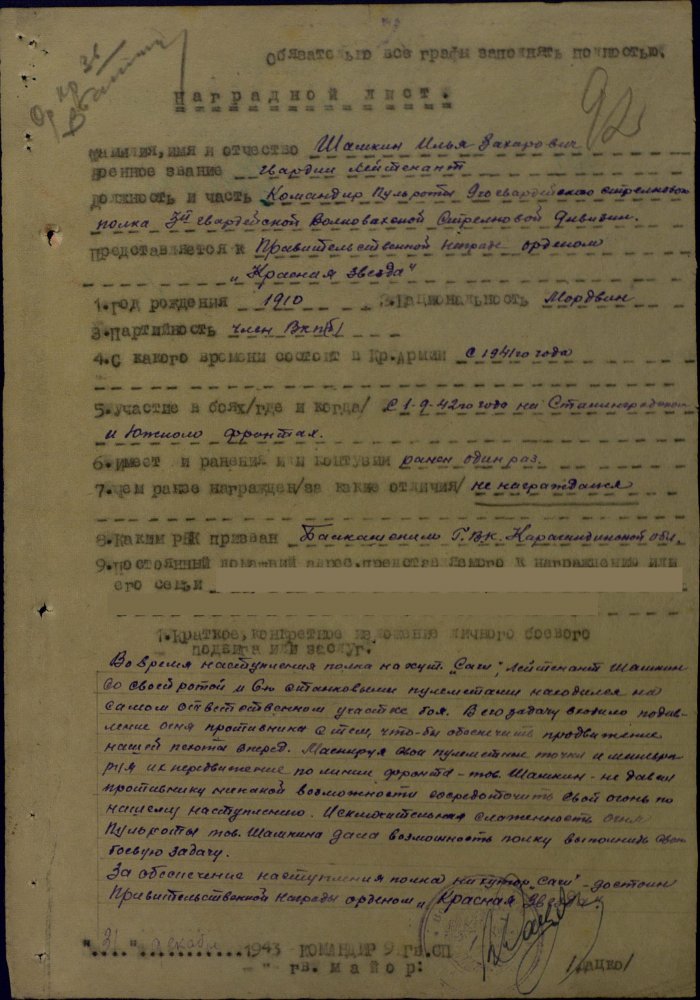 Обязательно все графы заполнять полностью.
Наградной лист.
92
Фамилия, имя и отчество Шашкин Илья Захарович
Военное звание гвардии лейтенант
Должность и часть Командир Пульроты 9го гвардейского стрелкового
полка 3й гвардейской Волновахской Стрелковой Дивизии.
Представляется к Правительственной награде орденом
„Красная Звезда"
1.Год рождения 1910 2.Национальность Мордвин
3.Партийность член ВКП(б)
4.С какого времени состоит в Кр.Армии с 1941го года
5.Участие в боях/где и когда/ С 1-9-42го года на Сталинградском
и Южном фронтах.
6.Имеет ли ранения или контузии ранен один раз.
7.Чем ранее награжден/за какие отличия/ не награждался
8.Каким РВК призван Г.В.К. Карагандинской обл.
9.Постоянный домашний адрес представляемого к награждению или
его семьи
1.Краткое, конкретное изложение личного боевого
подвига или заслуг.
Во время наступления полка на хут. „Саги", лейтенант Шашкин
со своей ротой и 6ю станковыми пулеметами находился на
самом ответственном участке боя. В его задачу входило подав-
ление огня противника с тем, что-бы обеспечить продвижение
нашей пехоты вперед. Маскируя свои пулеметные точки и
их передвижение по линии фронта - тов. Шашкин - не давал
противнику никакой возможности сосредоточить свой огонь по
нашему наступлению. Исключительная слаженность огня
Пульроты тов. Шашкина дала возможность полку выполнить свою
боевую задачу.
За обеспечение наступления полка на хутор „Саги" - достоин
Правительственной Награды орденом „Красная Звезда".
"31" декабря 1943 КОМАНДИР 9 ГВ.СП
гв. майор: /Дацко/